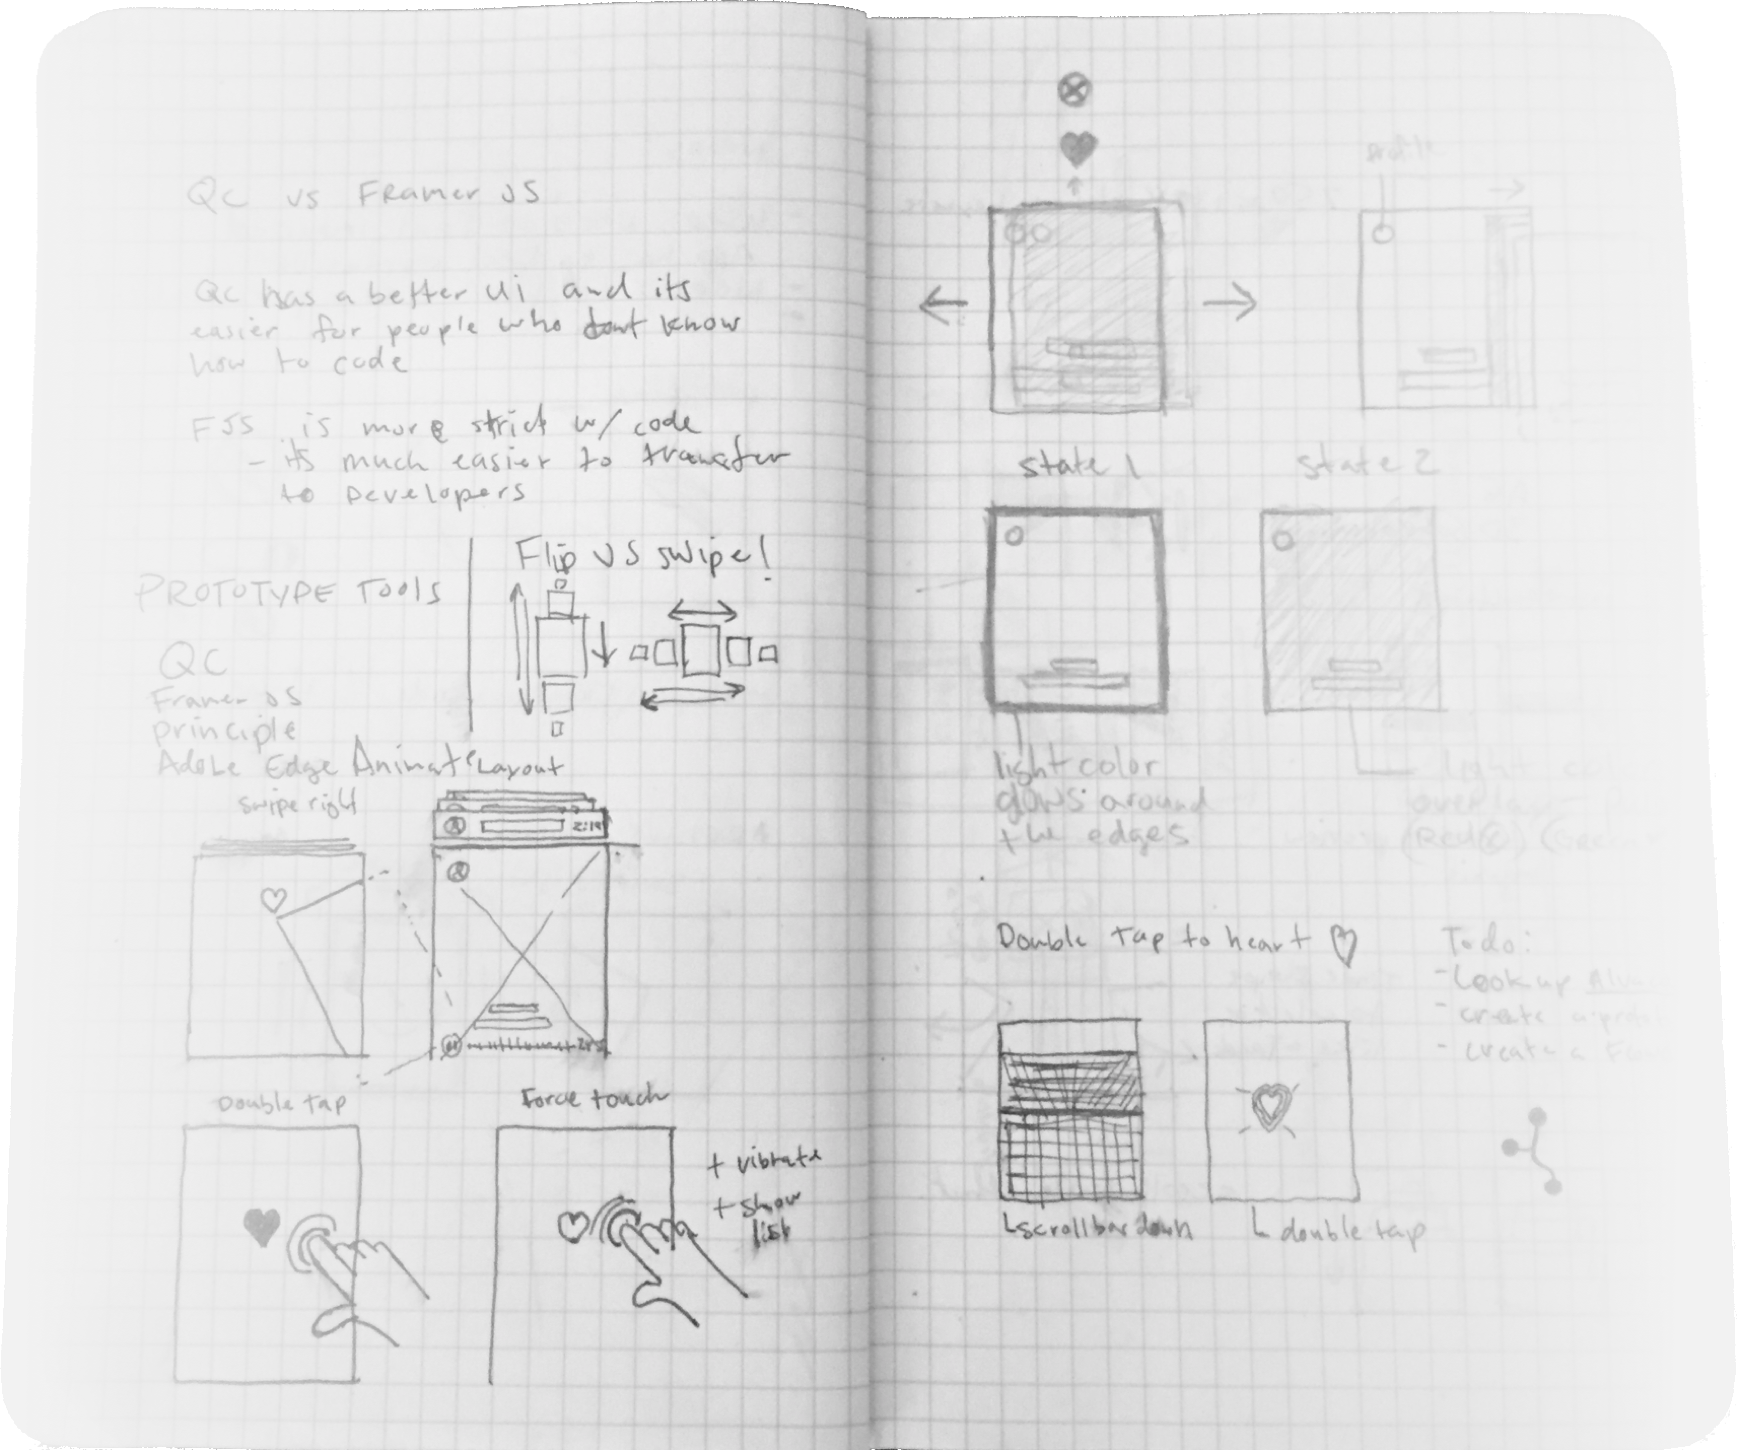 QC vs Framer JS
QC has a better UI and its
easier for people who dont know
how to code
FJS is more strict w/ code
- its much easier to transfer
to Developers
PROTOTYPE TOOLS
QC
Framer JS
principle
Adobe Edge Animate
Flip VS swipe!
Layout
swipe right
2:19
Double tap
Force touch
+ vibrate
+ show
list
Profile
state 1
state 2
light color
glows around
the edges
light
overlay
(Red
Double tap to heart
Todo:
- Look up
- create a
- create a
scrollbar down
double tap